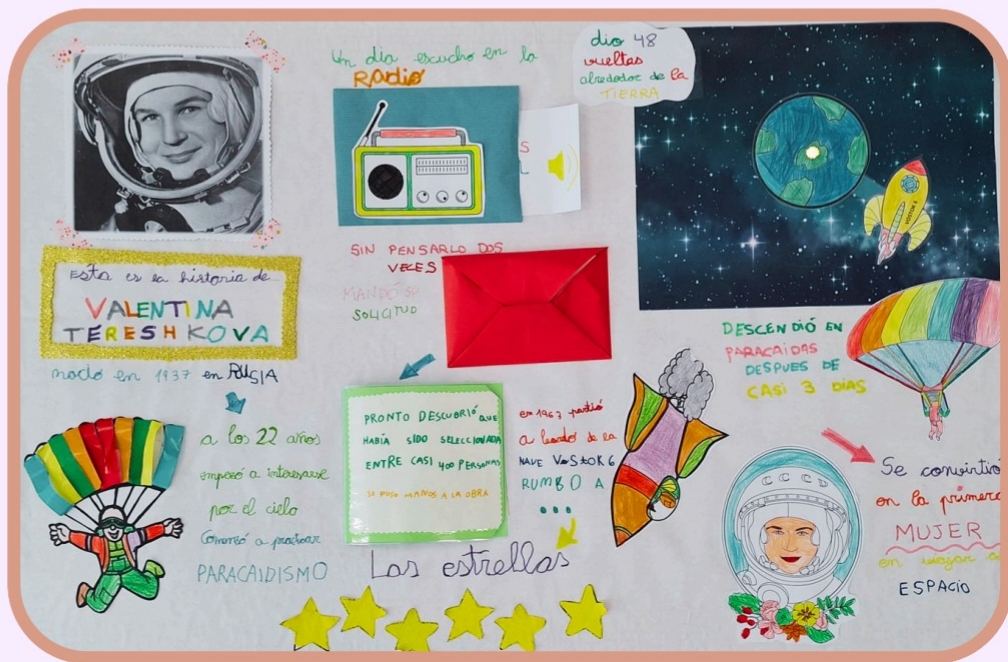 Esta es la historia de
VALENTINA
TERESHKOVA
nació en 1937 en RUSIA
a los 22 años
empezó a interesarse
por el cielo
Comenzó a practicar
PARACAIDISMO
Un día escucho en la
RADIO
S
L
SIN PENSARLO DOS
VECES
MANDÓ SU
SOLICITUD
PRONTO DESCUBRIÓ QUE
HABÍA SIDO SELECCIONADA
ENTRE CASI 400 PERSONAS
SE PUSO MANOS A LA OBRA
en 1963 partió
a bordo de la
NAVE VOSTOK 6
RUMBO A
...
Las estrellas
dio 48
vueltas
alrededor de la
TIERRA
VOSTOK 6
DESCENDIÓ EN
PARACAIDAS
DESPUES DE
CASI 3 DÍAS
CCCP
Se convirtió
en la primera
MUJER
en viajar a
ESPACIO